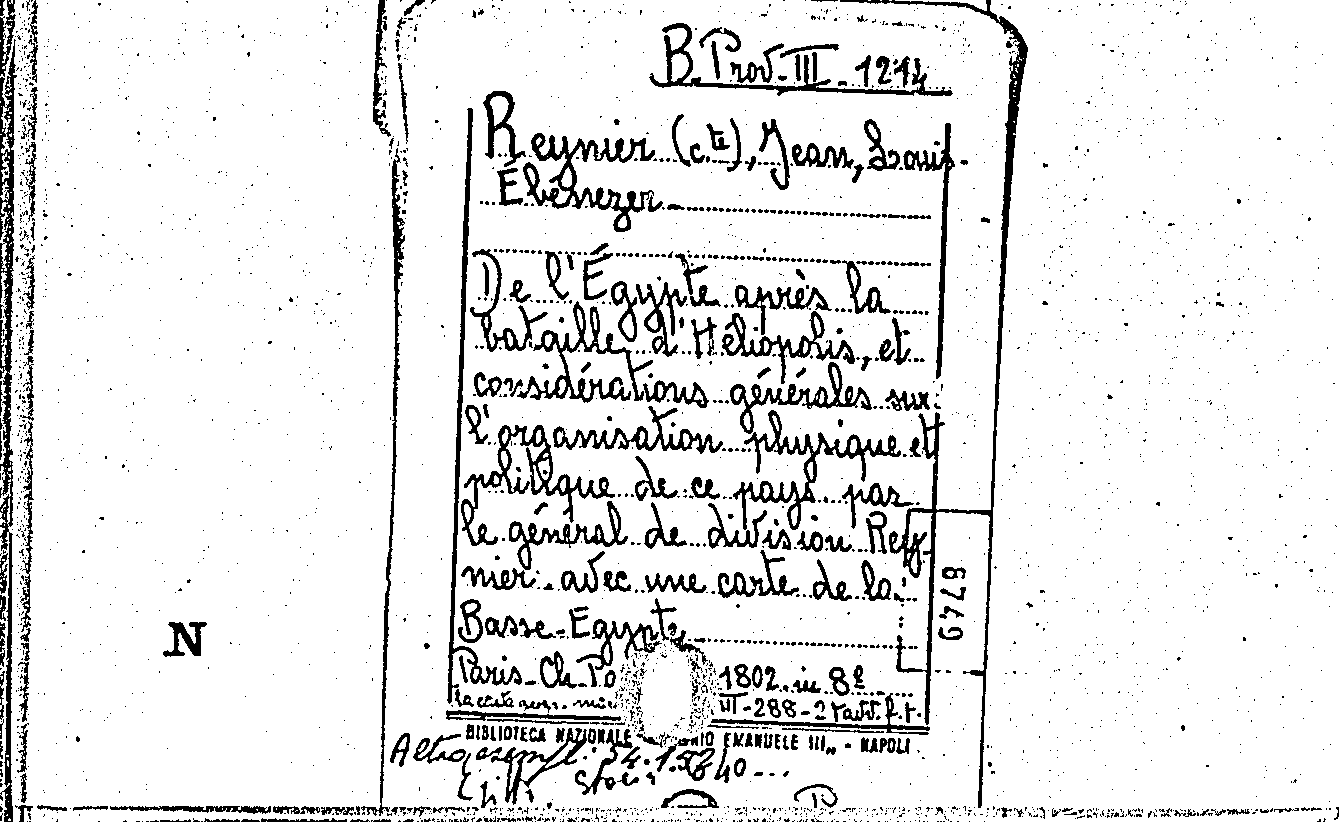 B. Prov. III. 1214
Reynier (cte), Jean, Louis-
Ébénezer
De l'Égypte après la
bataille d'Héliopolis, et
considérations générales sur
l'organisation physique et
politique de ce pays par
le général de division Rey-
nier. avec une carte de la
Basse-Egypte
Paris-Ch. Po 1802. in 8º
III-288-2 tavv. f.t.
BIBLIOTECA NAZIONALE NIO EMANUELE III„ - NAPOLI
Altro esempl.: 54.
6749
N